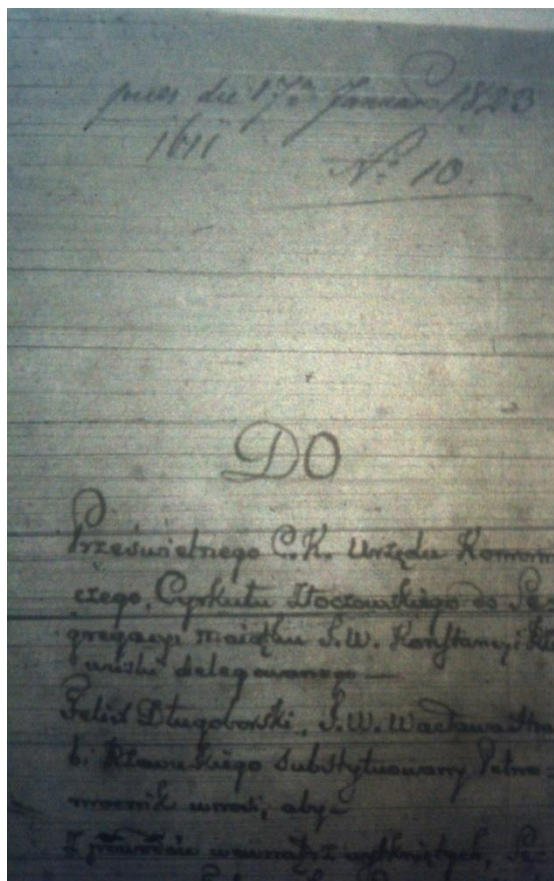 praes die 17ª Januar 1823
1611
No 10.
DO
Prześwietnego C.K. Urzędu Komorni
czego, Cyrkułu Złoczowskiego do Se-
gregacyi maiątku J.W. Konstancyi
delegowanego —
Felix Długoborski, J.W. Wacława Hra
bi Rzewuskiego substytuowany Pełno-
mocnik wnosi, aby —
Z